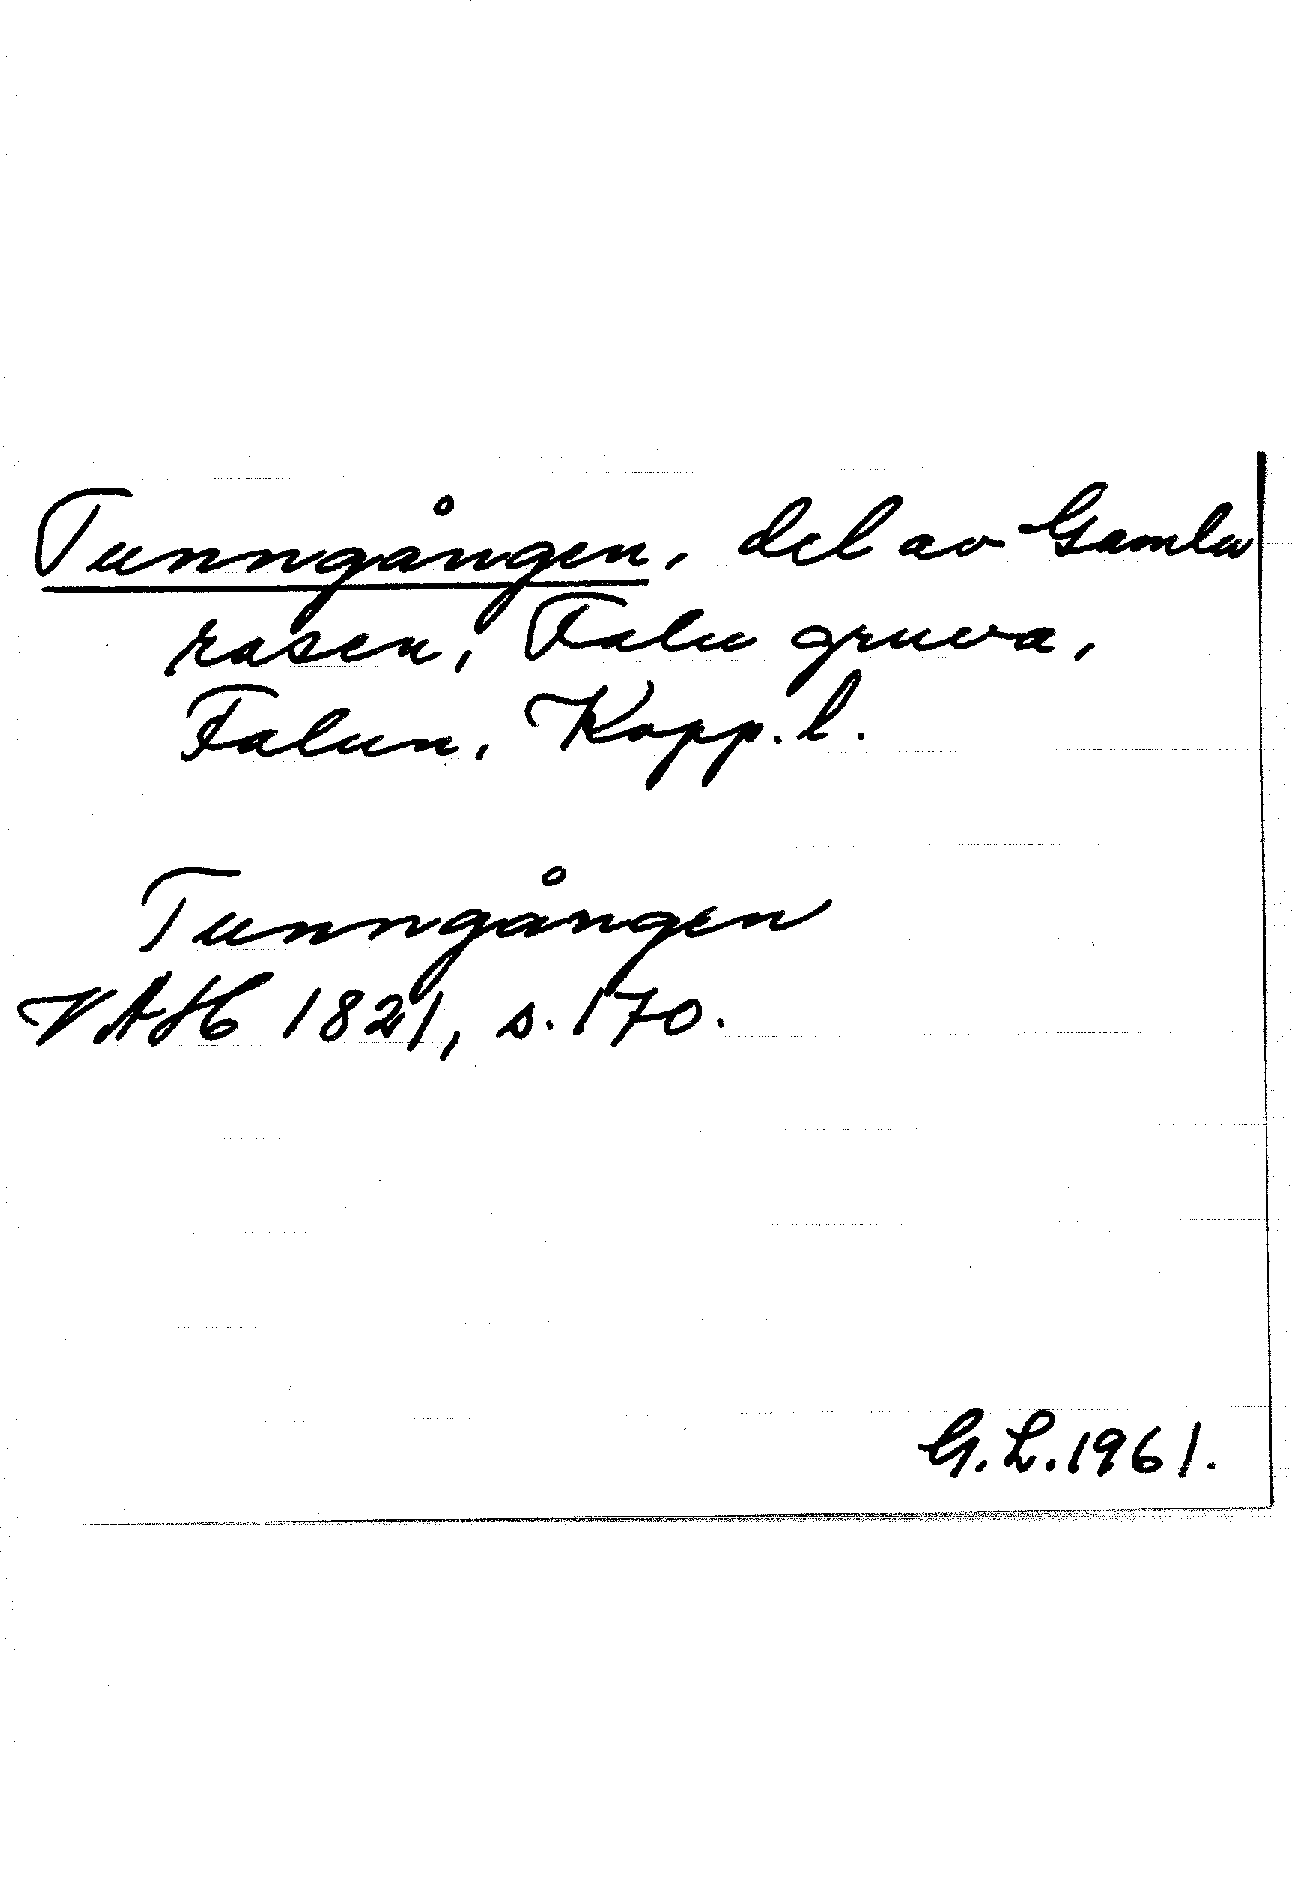 Tunngången, del av Gamla
rasen, Falu gruva,
Falun, Kopp. l.
Tunngången
VAH 1821, s. 170.
G. L. 1961.